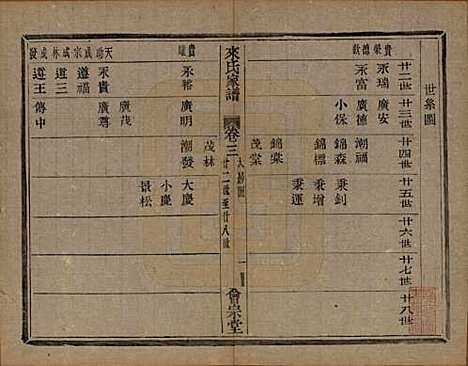 世系圖
廿二世 廿三世 廿四世 廿五世 廿六世 廿七世 廿八世
貴榮德欽
永瑞 廣安
永富 廣德 潮福
小保 錦森 秉釗
錦標 秉增
錦棠 秉運
茂棠
來氏家譜 卷三 大房 廿二世至廿八世 一 會宗堂
貴
永裕 廣明 潮發 大慶
茂林 小慶
景松
天助成宗成林成發
廣茂
永貴 廣尊
道福
道三
道王 傳中